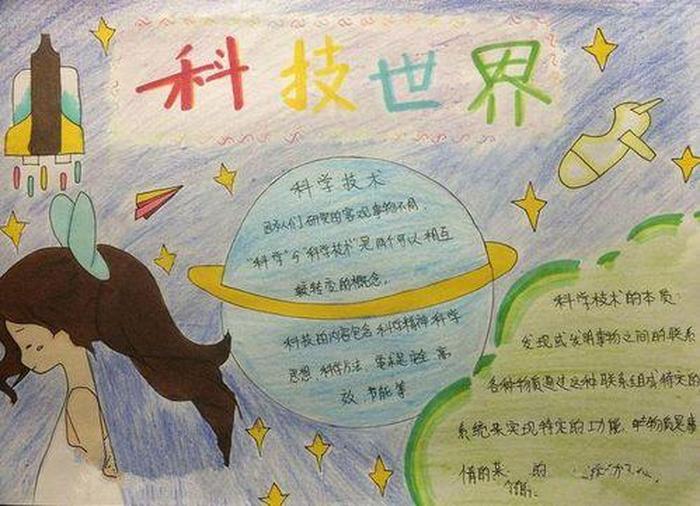 科技世界
科学技术
因为人们研究的客观事物不同，
"科学"与"科学技术"是两个可以相互
转变的概念。
科技的内容包含科学精神科学
思想、科学方法、安全、高
效、节能等
科学技术的本质：
发现或发明事物之间的联系
各种物质通过这种联系组成特定的
系统来实现特定的功能。
的